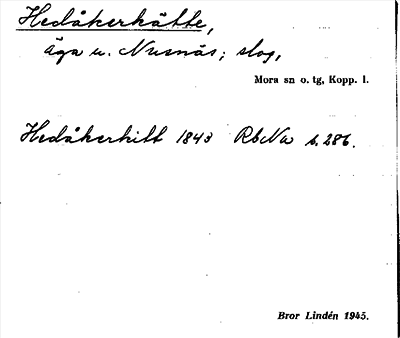 Hedåkerhätte,
äga u. Nusnäs; slog,
Mora sn o. tg, Kopp. l.
Hedåkerhitt 1843 RbNu s. 286.
Bror Lindén 1945.